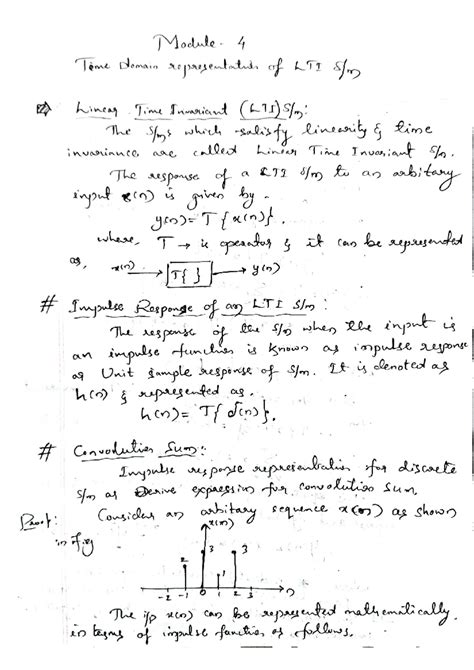 Module - 4
Time Domain representation of LTI S/m
Linear Time Invariant (LTI) S/m:
The S/ms which satisfy linearity & time
invariance are called Linear Time Invariant S/m.
The response of a LTI S/m to an arbitary
input x(n) is given by.
y(n) = T{x(n)}.
where, T → is operator & it can be represented
as, x(n) → T{ } → y(n)
# Impulse Response of an LTI S/m:
The response of the S/m when the input is
an impulse function is known as impulse response
or Unit Sample response of S/m. It is denoted as
h(n) & represented as.
h(n) = T{δ(n)}.
# Convolution Sum:
Impulse response representation for discrete
S/m or Derive expression for convolution Sum.
Proof: Consider an arbitary sequence x(n) as shown
in fig
x(n)
2 3 1 3
-2 -1 0 1 2 3 n
The i/p x(n) can be represented mathematically
in terms of impulse function as follows.